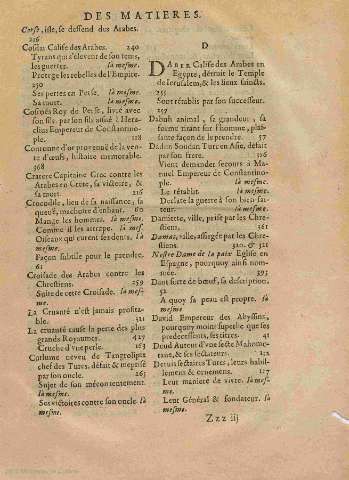 DES MATIERES.
Corse, isle, se deffend des Arabes.
216
Cosdar Calife des Arabes. 240
Tyrans qui s'élevent de son tems,
les guerres. la mesme.
Protege les rebelles de l'Empire.
250
Ses pertes en Perse. la mesme.
Sa mort. la mesme.
Cosroés Roy de Perse, livré avec
son fils par son fils aisné à Hera-
clius Empereur de Constantino-
ple. 118
Couronne d'or provenuë de la ven-
te d'œufs, histoire memorable.
368
Cratere Capitaine Grec contre les
Arabes en Crete, sa victoire, &
sa mort. 216
Crocodile, lieu de sa naissance, sa
queuë, machoire d'enhaut. 60
Mange les hommes. la mesme.
Comme il les attrape. la mes.
Oiseaux qui curent ses dents. la
mesme.
Façon subtile pour le prendre.
61
Croisade des Arabes contre les
Chrestiens. 259
Suite de cette Croisade. la mes-
me.
La Cruauté n'est jamais profita-
ble. 321
La cruauté cause la perte des plus
grands Royaumes. 427
Cruche d'vne perle. 163
Cutlume neveu de Tangrolipix
chef des Turcs, défait & méprisé
par son oncle. 265
Sujet de son mécontentement.
la mesme.
Ses victoires contre son oncle. la
mesme.
D
DABER Calife des Arabes en
Egypte, détruit le Temple
de Ierusalem, & les lieux saincts.
255
Sont rétablis par son successeur.
257
Dabuh animal, sa grandeur, sa
forme tirant sur l'homme, plai-
sante façon de le prendre. 57
Dadem Soudan Turc en Asie, défait
par son frere. 316
Vient demander secours à Ma-
nuel Empereur de Constantino-
ple. la mesme.
Le rétablit. la mesme.
Declare la guerre à son bien-fac-
teur. la mesme.
Damiette, ville, prise par les Chre-
stiens. 361
Damas, ville, assiegée par les Chre-
stiens. 320. & 321
Nostre Dame de la paix Eglise en
Espagne, pourquoy ainsi nom-
mée. 393
Dant sorte de bœuf, sa description.
52
A quoy sa peau est propre. la
mesme
David Empereur des Abyssins,
pourquoy moins superbe que ses
predecesseurs, ses titres. 41
Deud Auteur d'vne secte Mahome-
tane, & ses sectateurs. 112
Dervis sectaires Turcs, leurs habil-
lemens & ornemens. 117
Leur maniere de vivre. la mes-
me.
Leur Général & fondateur. la
mesme.
Zzz iij